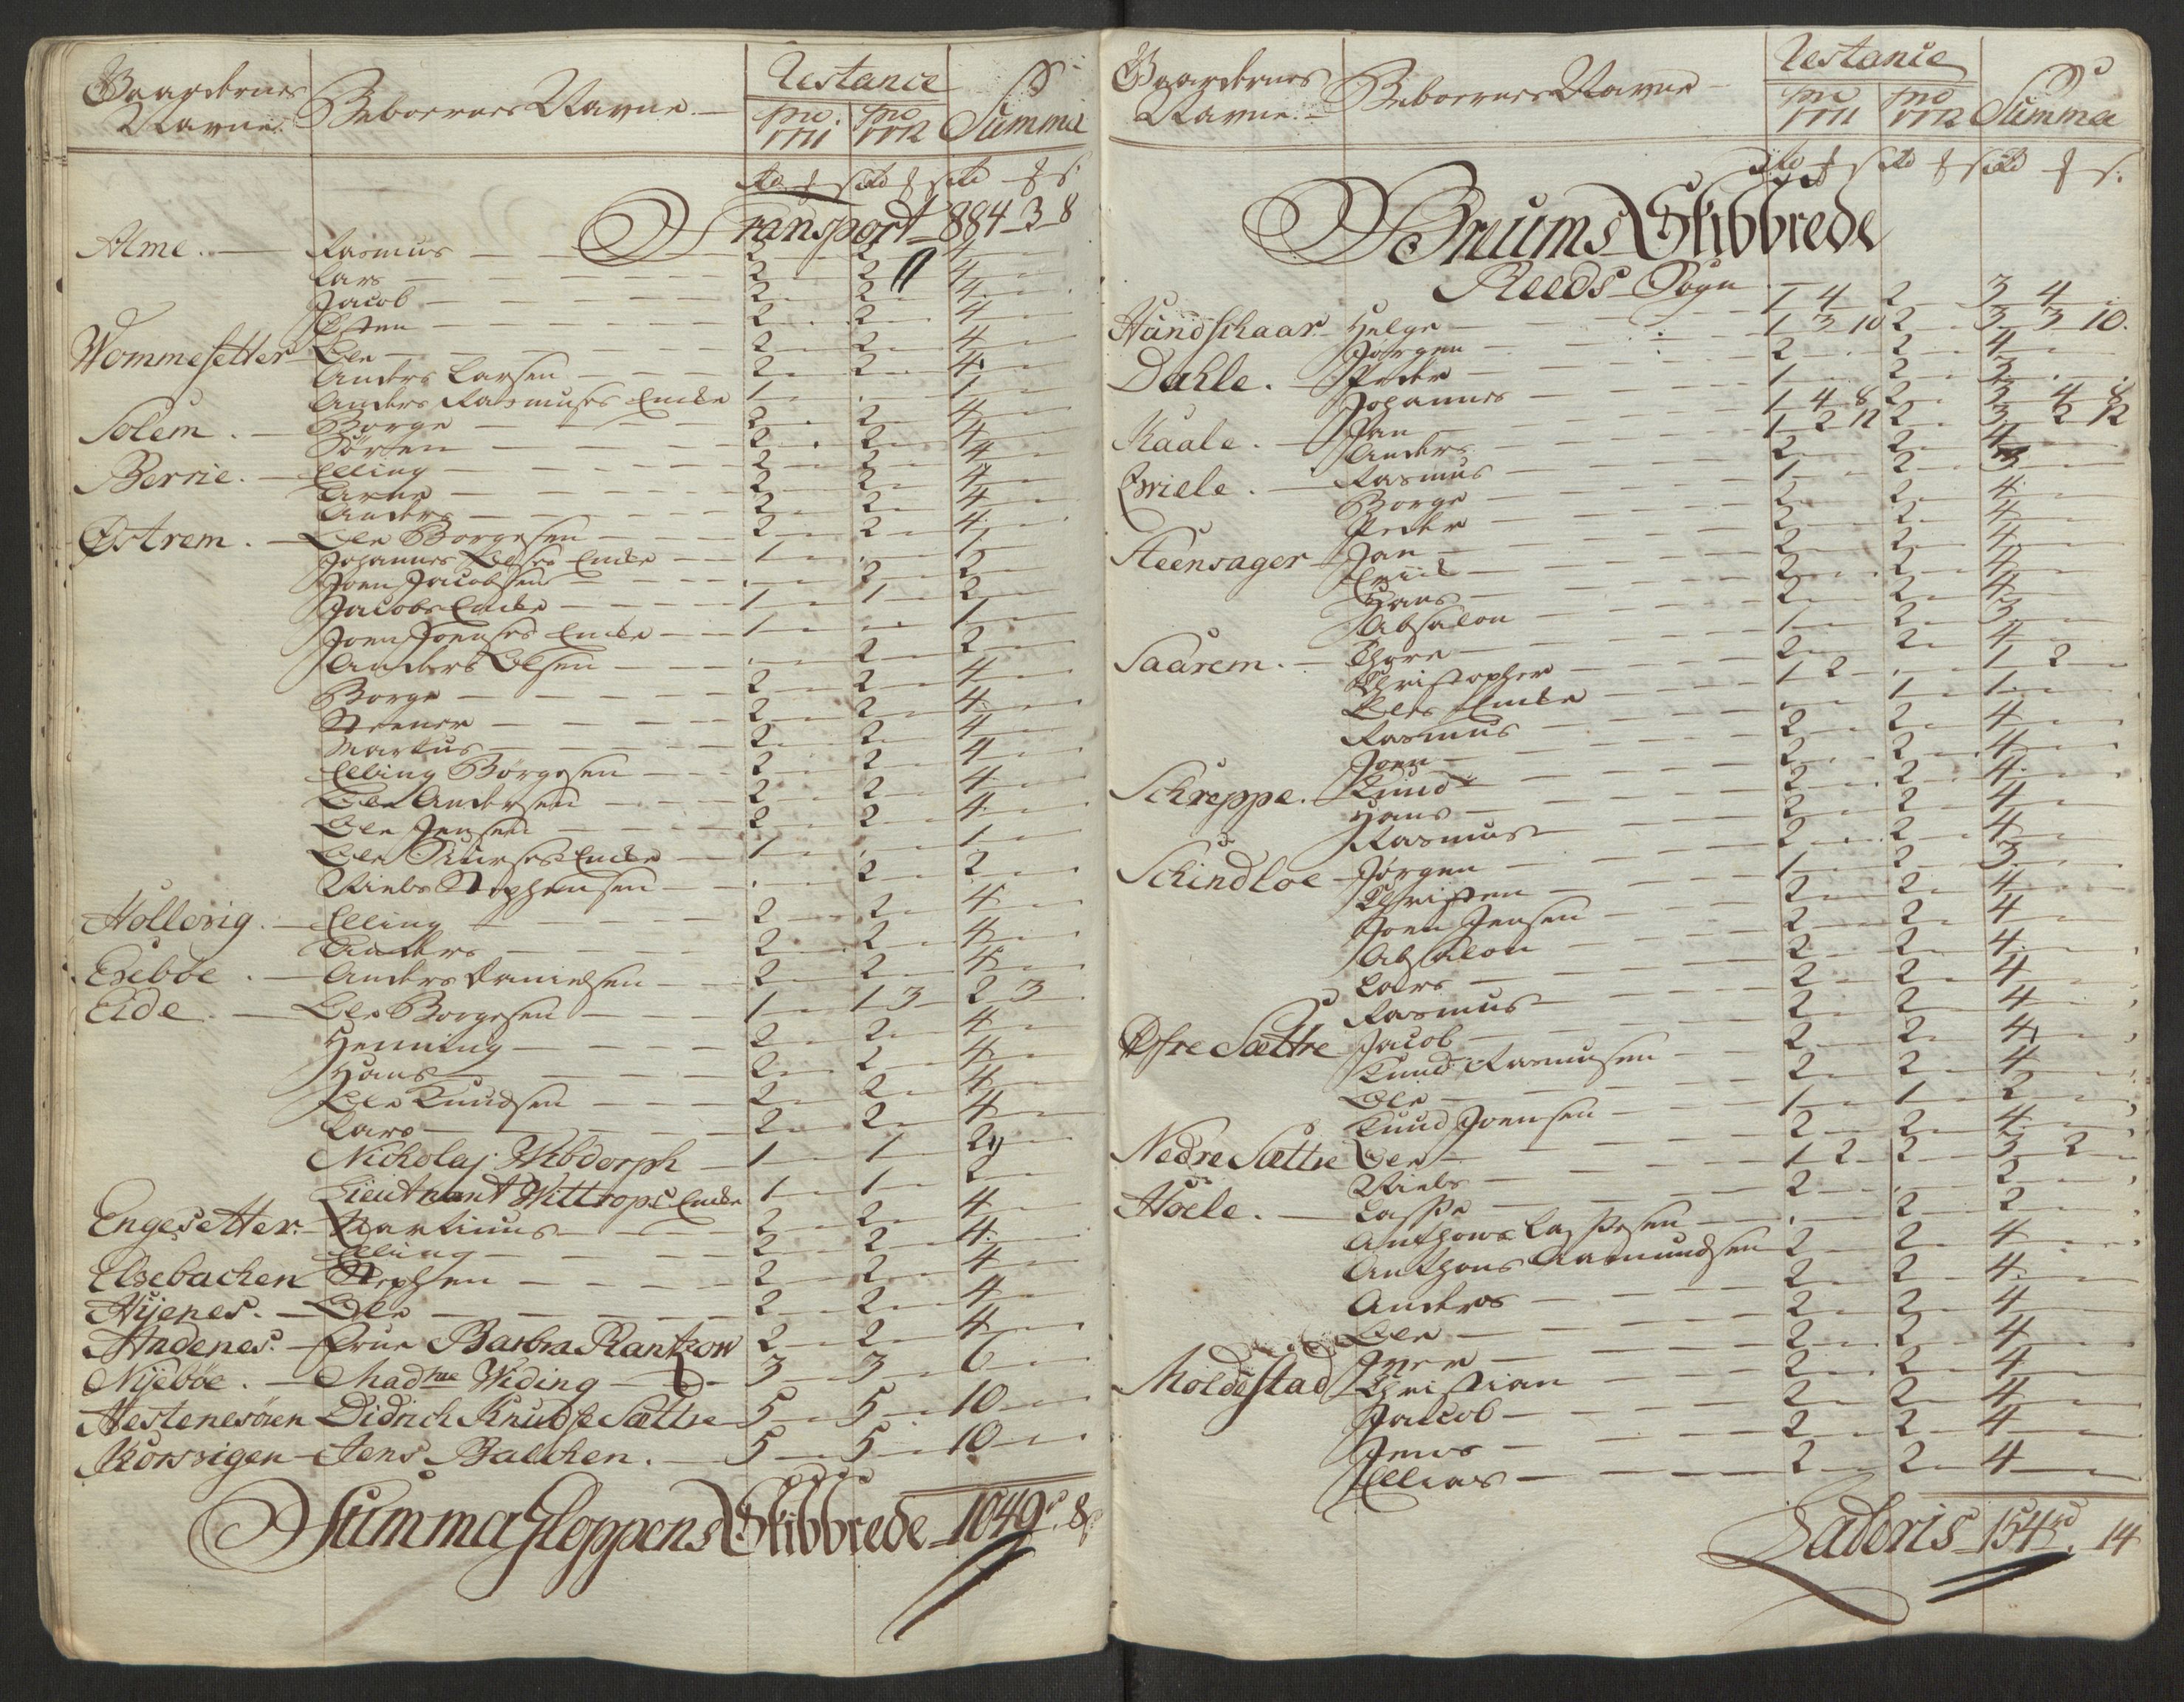 Gaardernes Navne. Beboernes Navne. Restance pro 1771 pro 1772 Summa
rd ₰ s rd ₰ s rd ₰ s
Transport 884 3 8
Alme. Rasmus 2 2 4
Lars 2 2 4
Jacob 2 2 4
Osten 2 2 4
Wommesetter Ole 2 2 4
Anders Larsen 2 2 4
Anders Rasmuses Encke 1 . 1
Solem. Borge 2 2 4
Sørren 2 2 4
Berrie. Elling 2 2 4
Arne 2 2 4
Anders 2 2 4
Østrem. Ole Borgesen 2 2 4
Johannes Olses Encke 1 . 1
Joen Jacobsen . 2 2
Jacobs Encke 1 1 2
Joen Joenses Encke 1 . 1
Anders Olsen . 2 2
Borge 2 2 4
Steener 2 2 4
Markus 2 2 4
Elling Børgesen 2 2 4
Ole Andersen 2 2 4
Ole Jensen 2 2 4
Ole Encke 1 . 1
Niels Stephensen . 2 2
Hollevig. Elling 2 2 4
Anders 2 2 4
Eseböe. Anders Danielsen 2 2 4
Eide. Ole Borgesen 1 1 3 2 3
Henning 2 2 4
Hans 2 2 4
Ole Knudsen 2 2 4
Lars 2 2 4
Nickolaj Wibdorph 1 1 2
Lieutnant Wittrops Encke 1 1 2
Engesetter. Martinus 2 2 4
Elling 2 2 4
Elsebachen Stephen 2 2 4
Hyenes. Ole 2 2 4
Andenes. Frue Barbra Rantzow 2 2 4
Nyeböe. Madme Widing 3 3 6
Hestenesören Didrich Knudse Sættre 5 5 10
Korsvigen Jens Balchen. 5 5 10
Summa Gloppens Skibbrede 1049 rd 8 s
Gaardernes Navne. Beboernes Navne Restance pro 1771 pro 1772 Summa
rd ₰ s rd ₰ s rd ₰ s.
Bruums Skibbrede
Reeds Sogn
Hundschaar Helge 1 4 2 3 4
Jørgen 1 3 10 2 3 3 10.
Dahle. Peder 2 2 4
Johannes 1 2 3
Kaale. Jan 1 4 8 2 3 4 8
Anders 1 2 12 2 3 2 12
Qviele. Rasmus 2 2 4
Borge 1 2 3
Peder 2 2 4
Steensager Jan 2 2 4
Eriik 2 2 4
Hans 2 2 4
Absalon 2 2 4
Saarem. Thore 1 2 3
Christopher 2 2 4
Oles Encke 1 2 . 1 2
Rasmus . 1 1
Joen 2 2 4
Schreppe. Knud 2 2 4
Hans 2 2 4
Rasmus 2 2 4
Schindloe Jørgen 2 2 4
Christen 1 2 3
Joen Jensen 2 2 4
Absalon 2 2 4
Lars 2 2 4
Rasmus 2 2 4
Øfre Sættre Jacob 2 2 4
Knud Rasmusen 2 2 4
Ole 2 2 4
Knud Joensen 1 1 2
Nedre Sættre Ole 2 2 4
Niels 1 2 2 3 2
Hoele. Lasse 2 . 2
Anthone Lassesen . 2 2
Anthons Aamundsen 2 2 4
Anders 2 2 4
Ole 2 2 4
Moldestad Iver 2 2 4
Christian 2 2 4
Jacob 2 2 4
Jens 2 2 4
Ellias 2 2 4
Lateris 154 rd. 14